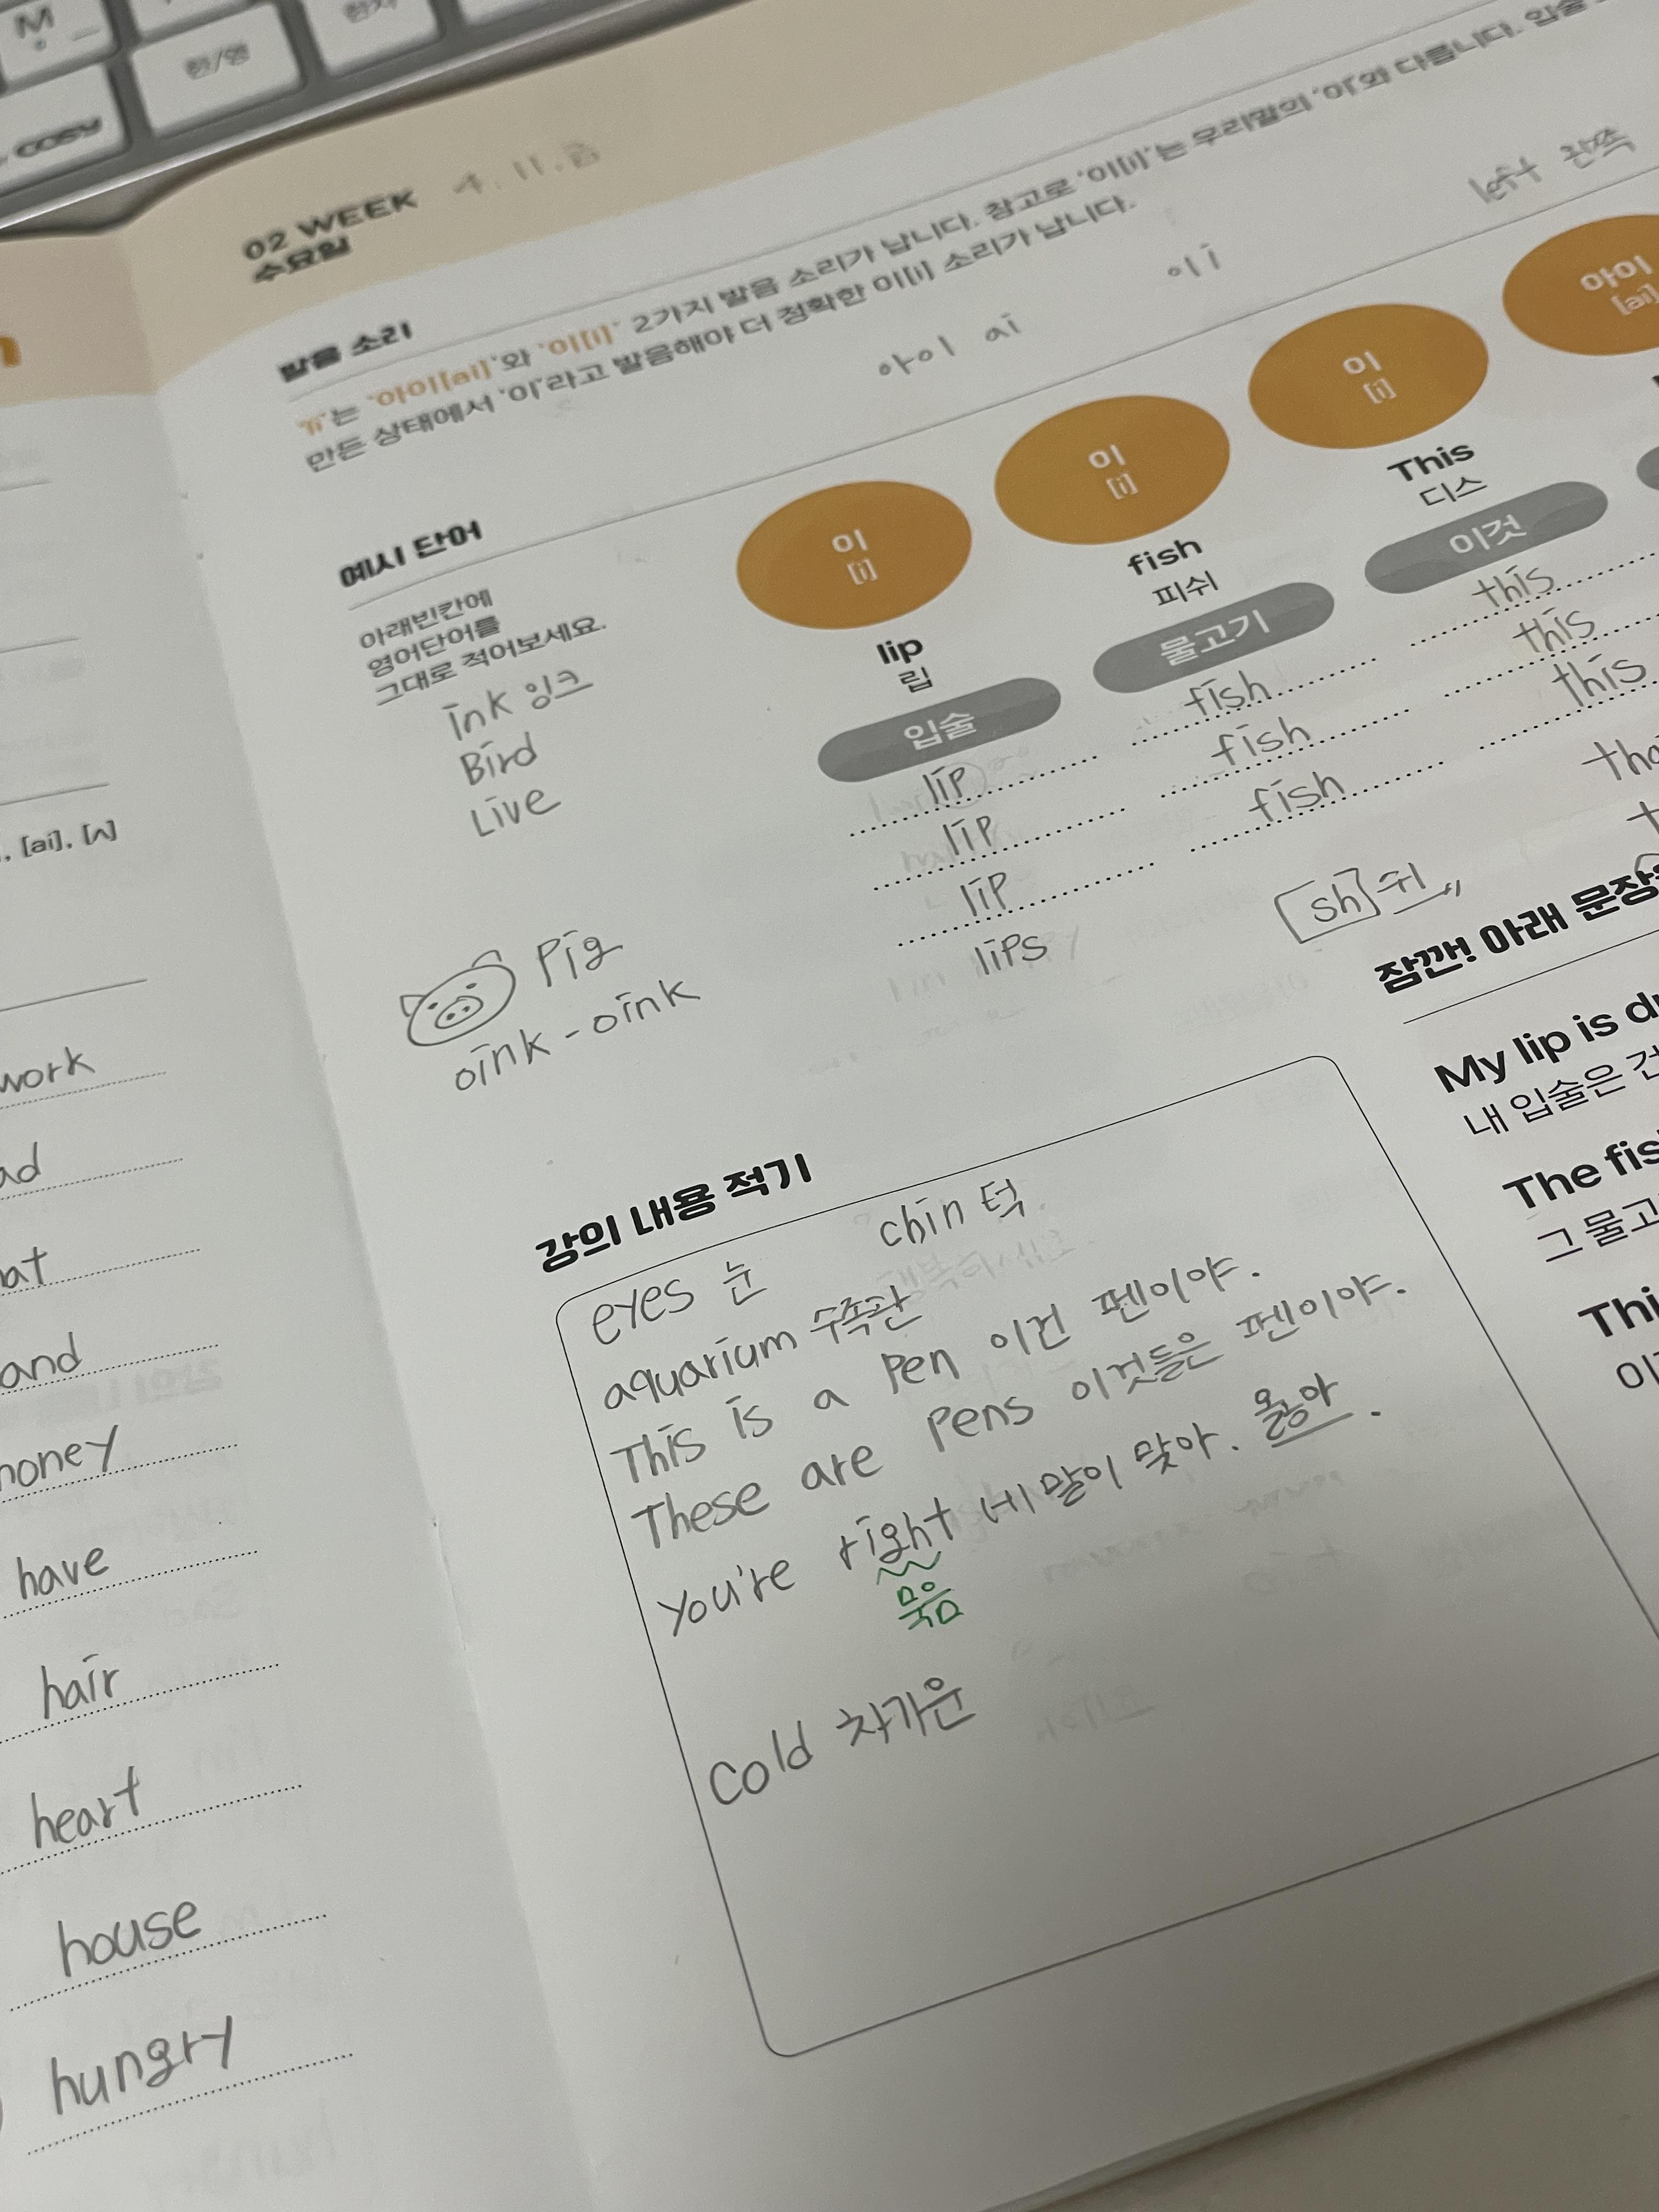 M
한/영
한자
COSY
, [ai], [ʌ]
work
at
and
money
have
hair
heart
house
hungry
02 WEEK 4. 11. 금
수요일
발음 소리
'i'는 '아이[ai]'와 '이[i]' 2가지 발음 소리가 납니다. 참고로 '이[i]'는 우리말의 '이'와 다릅니다. 입술
만든 상태에서 '이'라고 발음해야 더 정확한 이[i] 소리가 납니다.
아이 ai 이 i left 왼쪽
예시 단어
아래빈칸에
영어단어를
그대로 적어보세요.
ink 잉크
Bird
Live
Pig
oink - oink
이
[i]
lip
립
입술
lip
lip
lip
lips
이
[i]
fish
피쉬
물고기
fish
fish
fish
[sh] 쉬
이
[i]
This
디스
이것
this
this
this
아이
[ai]
잠깐! 아래
My lip is
내 입술은
The
그
이
강의 내용 적기
eyes 눈 chin 턱
aquarium 수족관
This is a pen 이건 펜이야.
These are pens 이것들은 펜이야.
You're right 네 말이 맞아. 옳아.
묵음
Cold 차가운